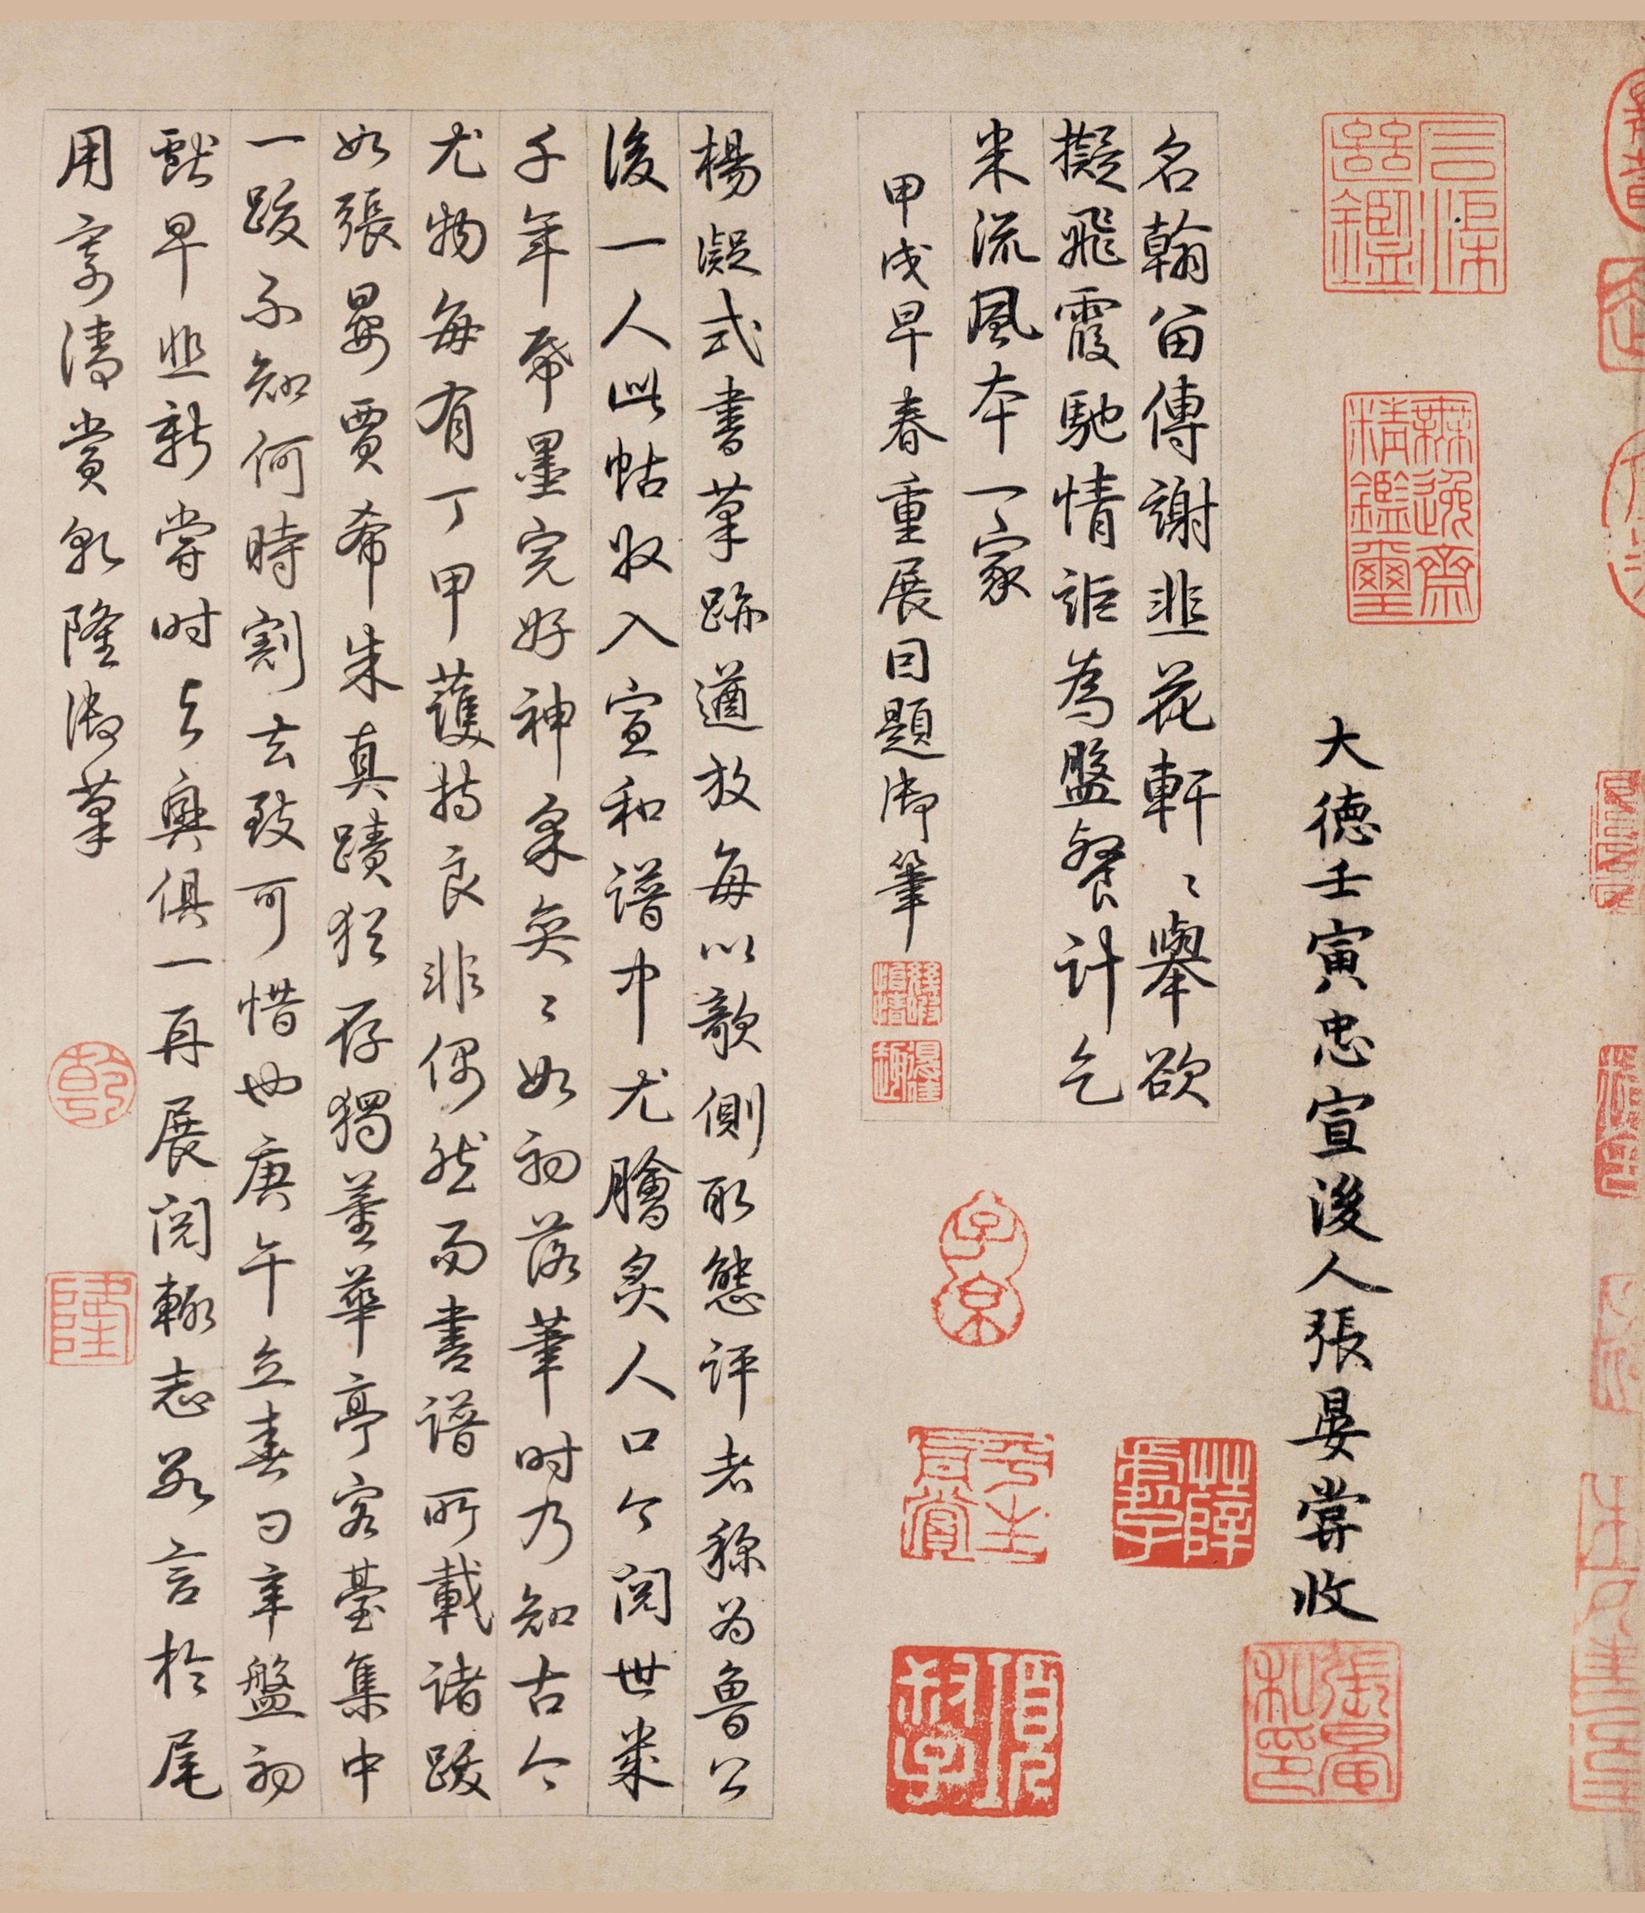 大德壬寅忠宣後人張晏嘗收
名翰留傳謝韭花軒〻舉欲
擬飛霞馳情詎為盤餐計乞
米流風本一家
甲戌早春重展因題御筆
楊凝式書筆跡遒放每以欹側取態評者稱為魯公
後一人此帖收入宣和譜中尤膾炙人口今閱世幾
千年紙墨完好神采奕〻如初落筆時乃知古今
尤物每有丁甲護持良非偶然而書譜所載諸跋
如張晏賈希朱真蹟猶存獨董華亭容臺集中
一跋不知何時割去致可惜也庚午立春日辛盤初
獻早韭新嘗時與興俱一再展閱輒志數言於尾
用寄清賞乾隆御筆
乾
隆
無逸齋
精鑑璽
子京
張晏
私印